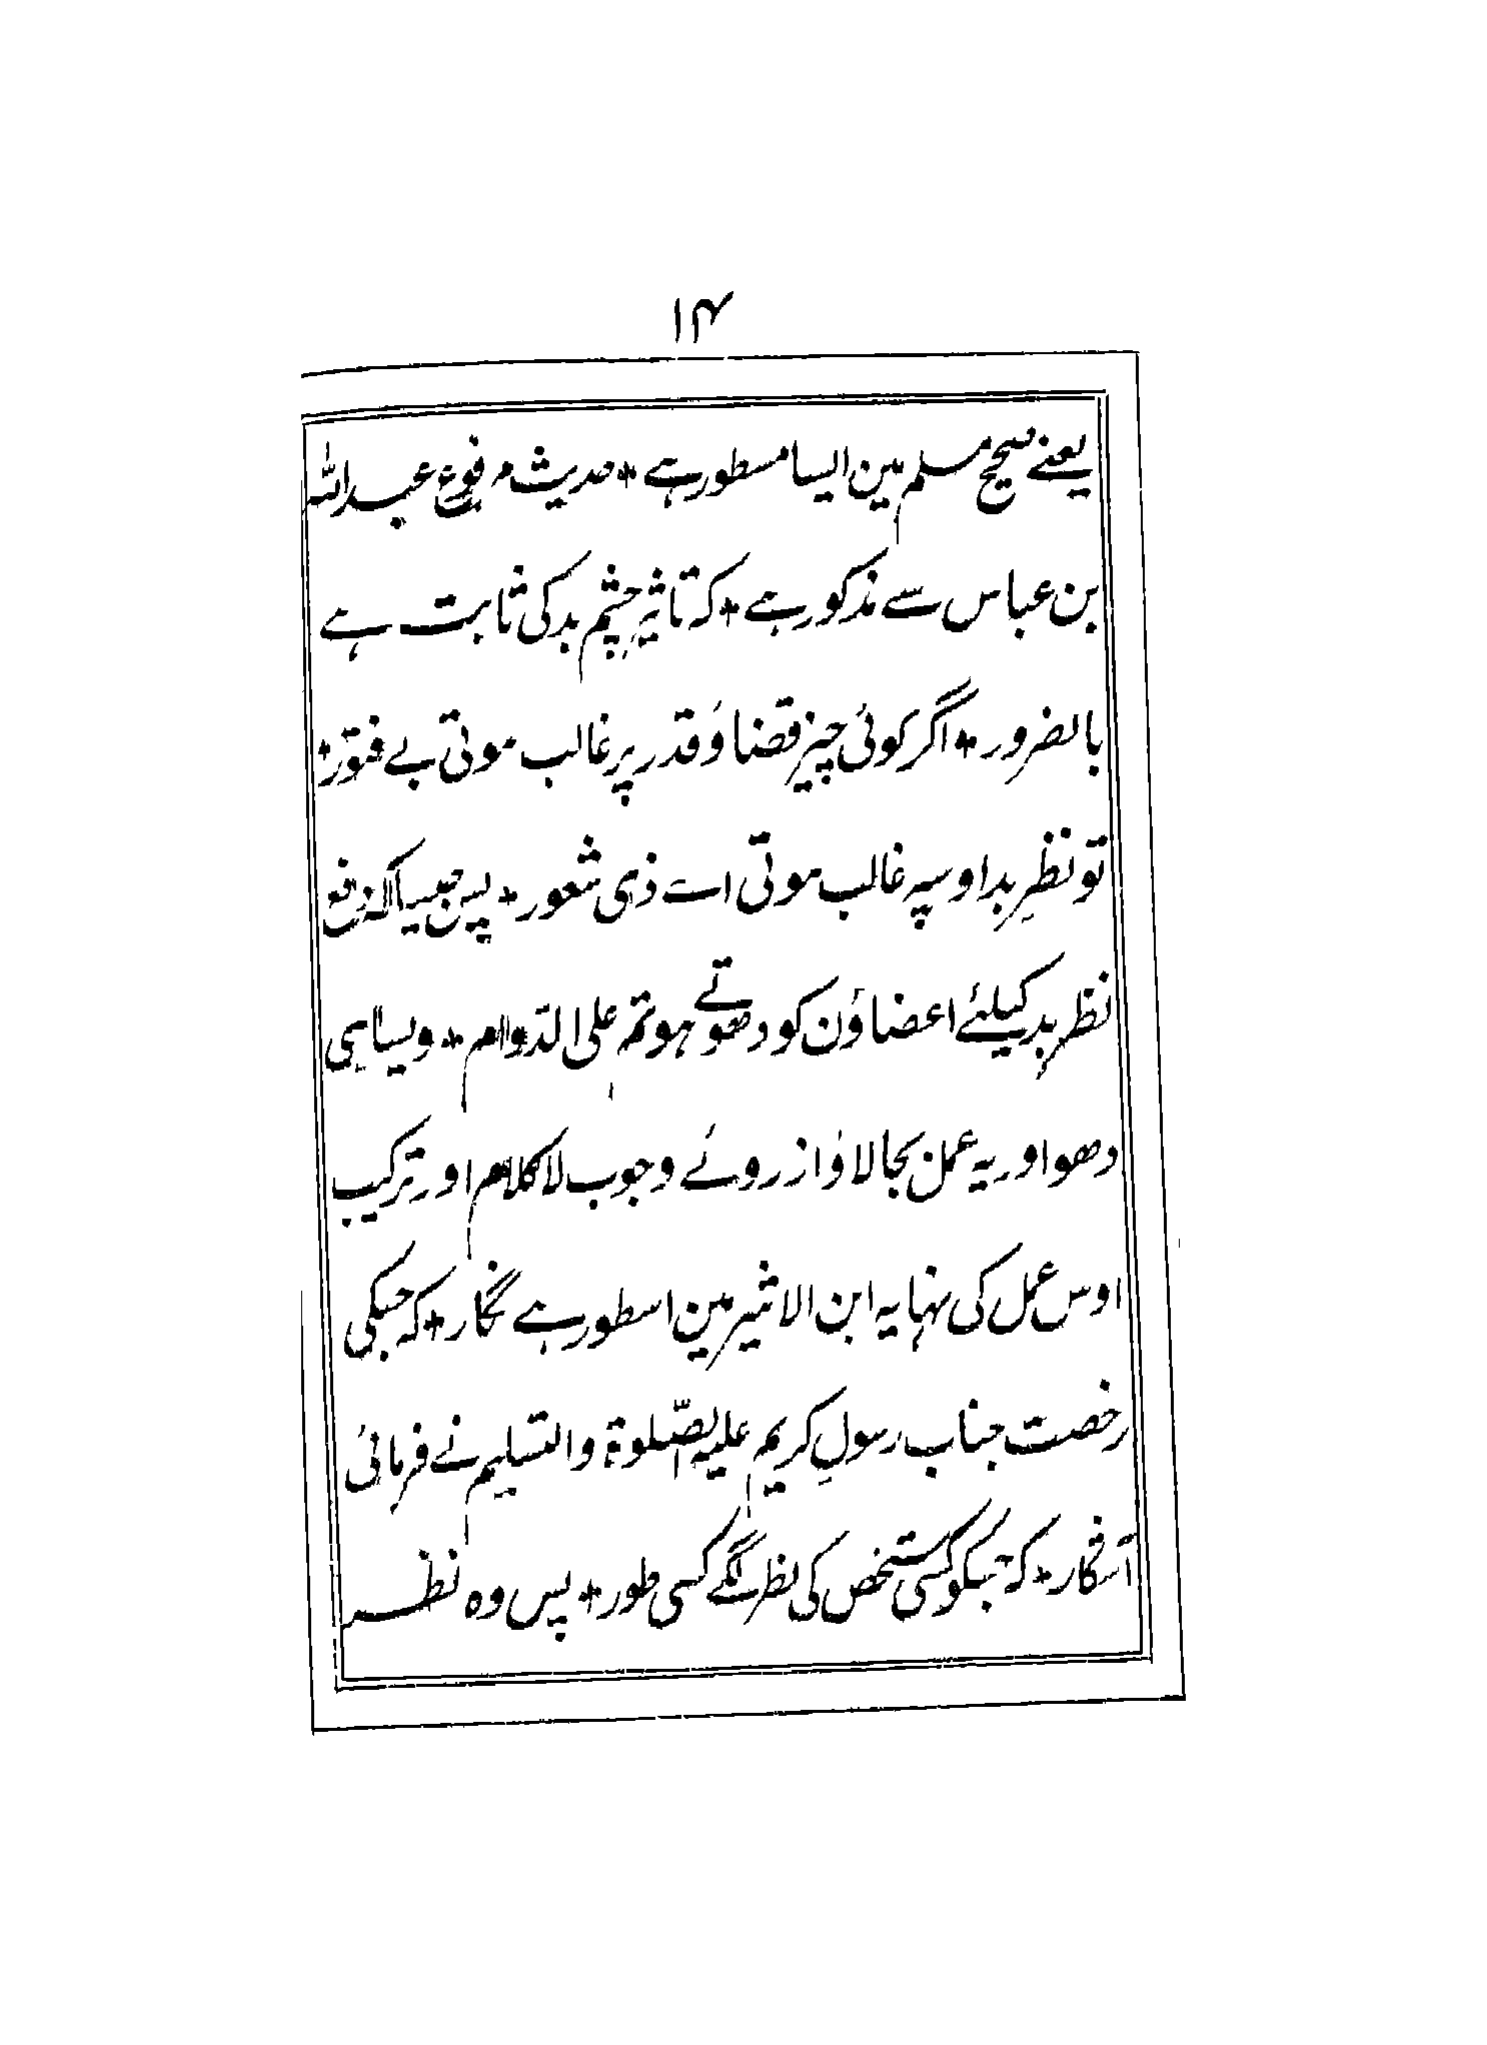 ۱۴
یعنے صحیح مسلم مین ایسا مسطور ہے * حدیث مرفوع عبد اللہ
بن عباس سے مذکور ہے * کہ تاثیر چشم بد کی ثابت ہے
بالضرور * اگر کوئی چیز قضا وَ قدر پر غالب ہوتی بے فتور *
تو نظرِ بد اوسپہ غالب ہوتی اے ذی شعور * پس جیسا کہ دفع
نظر بد کیلئے اعضاؤن کو دھوتے ہو تم علی الدّوام * ویسا ہی
دھو اور یہ عمل بجا لاؤ از روئے وجوب لا کلام اور ترکیب
اوس عمل کی نہایہ ابن الاثیر مین اسطور ہے نگار * کہ جسکی
رخصت جناب رسولِ کریم علیہ الصّلوة والتسلیم نے فرمائی
آشکار * کہ جسکو کسی شخص کی نظر لگے کسی طور * پس وہ نظر